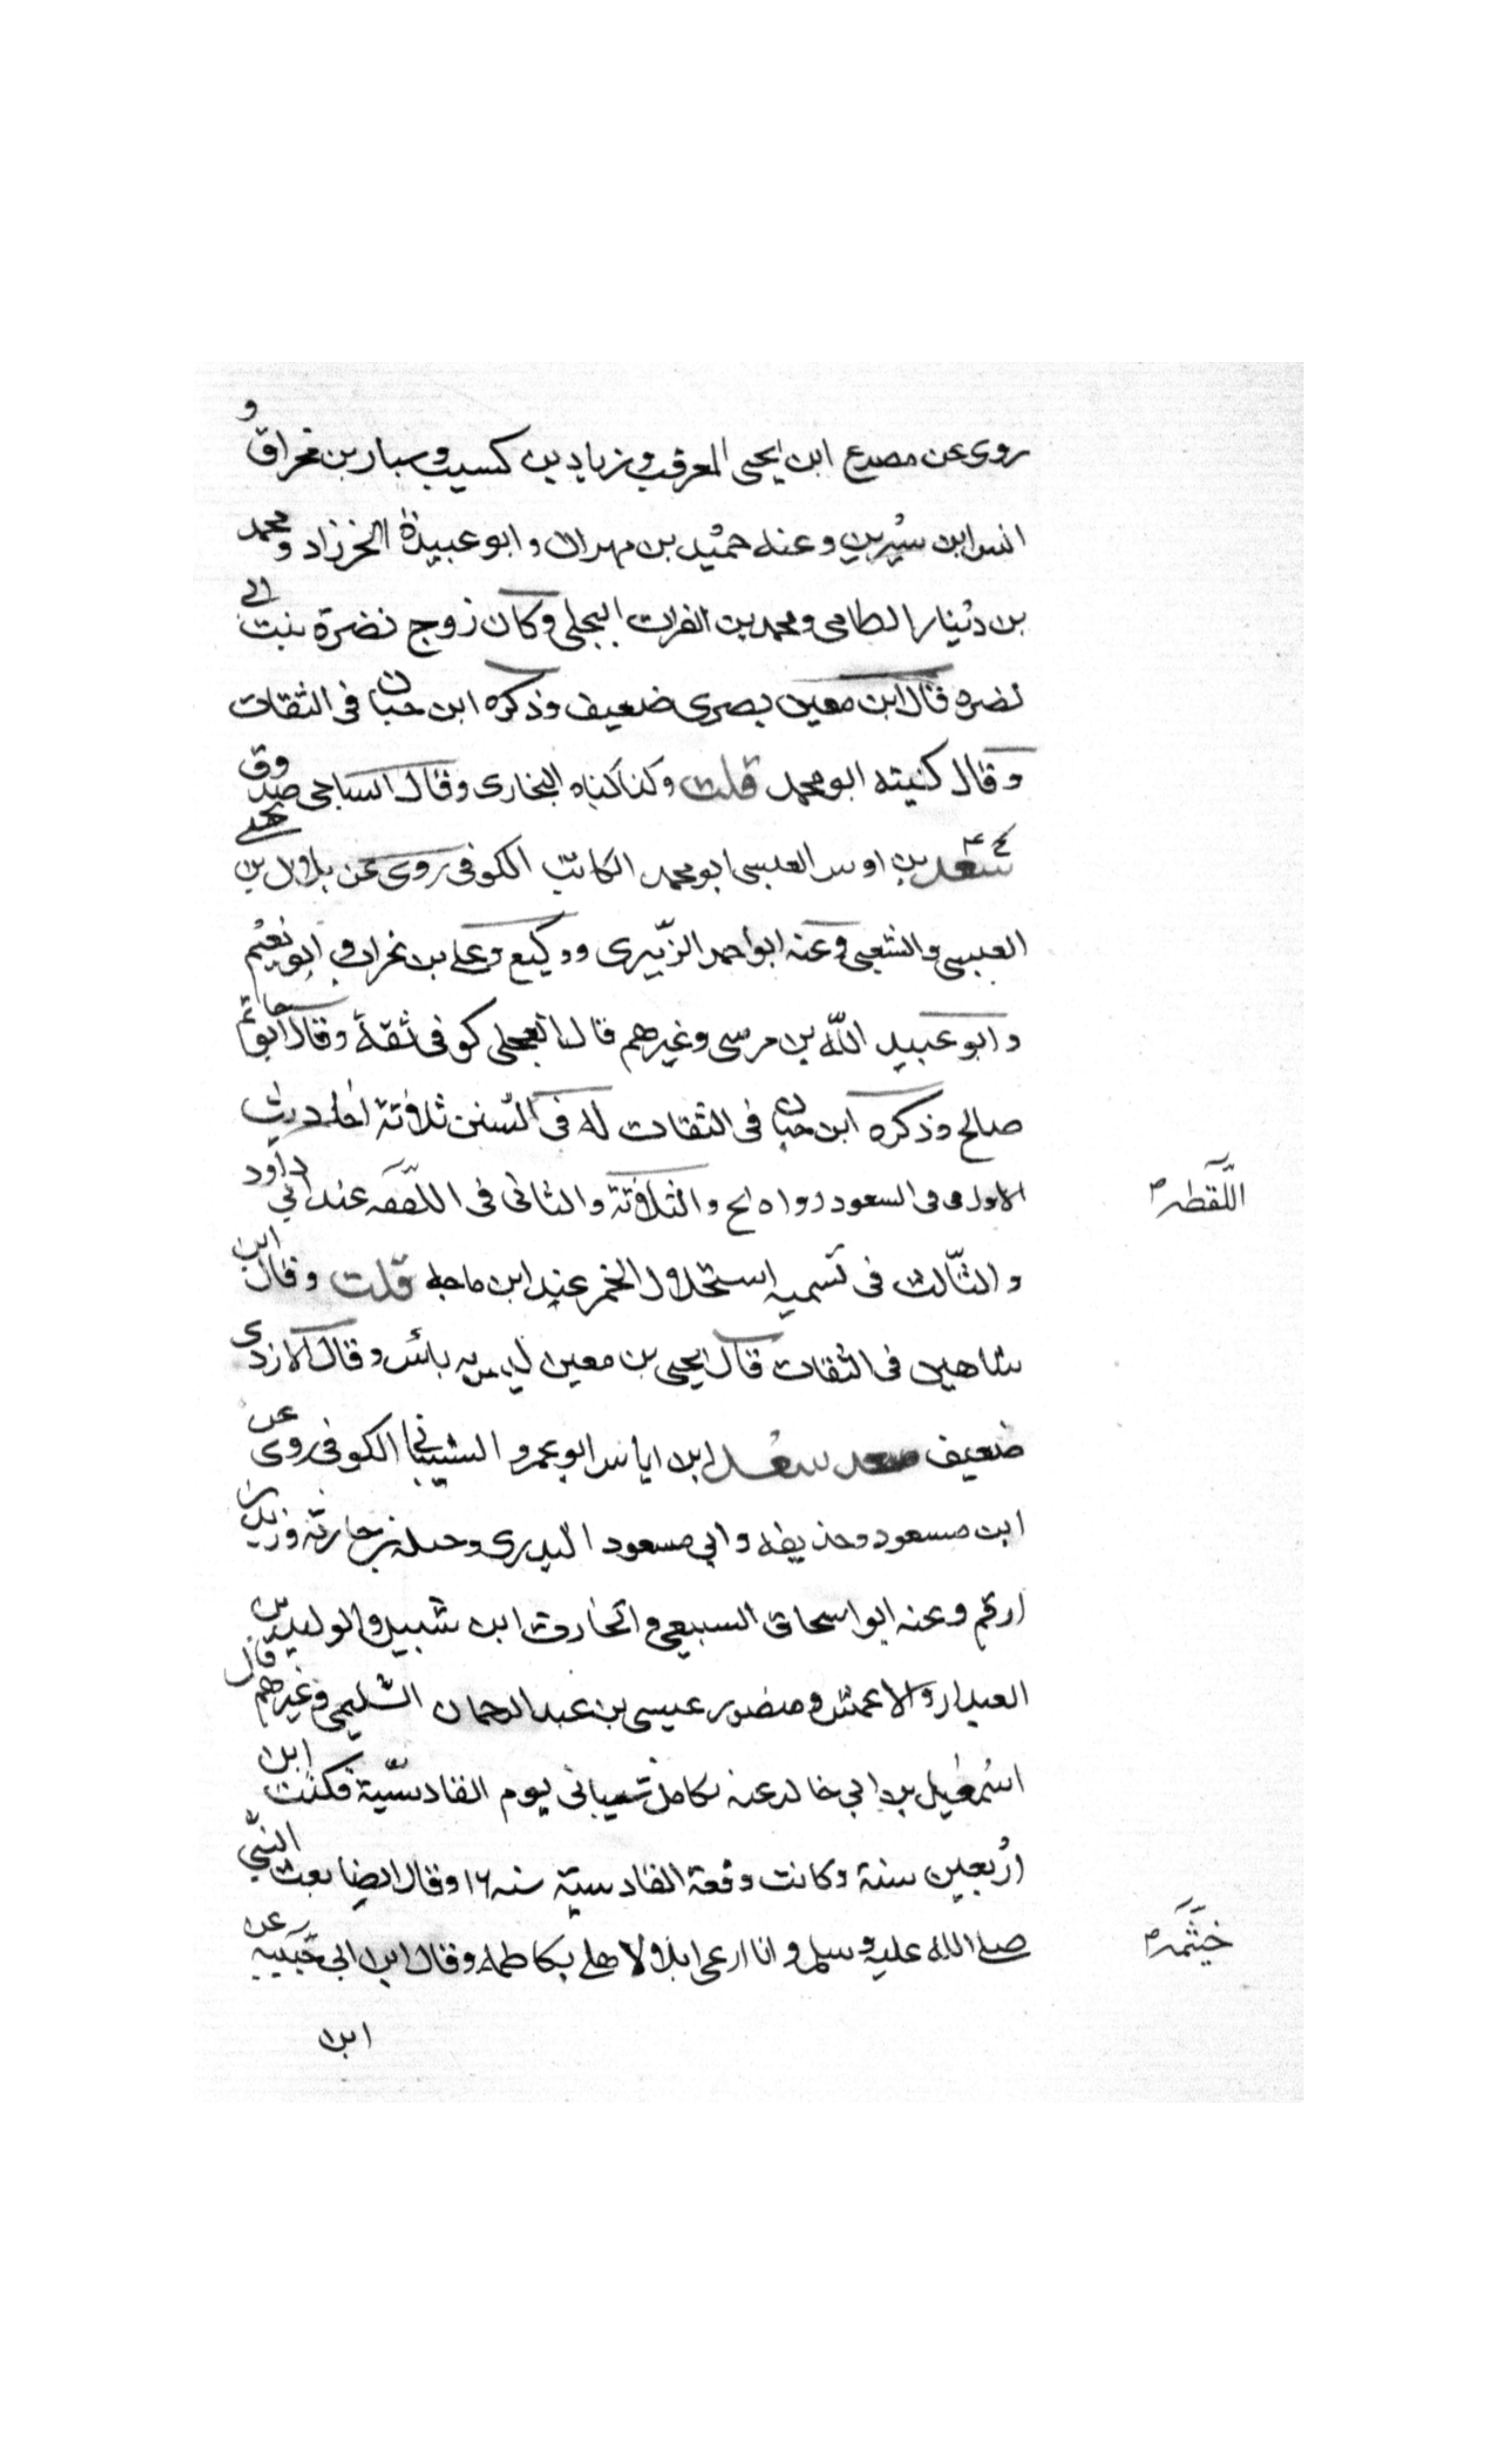 روى عن مصدع ابن يحيى المعرقب وزياد بن كسيب وسيار بن مخراق و
انس ابن سيرين وعنه حميد بن مهران وابو عبيدة الخرزاد ومحمد
بن دينار الطامى ومحمد بن الفرات البجلى وكان زوج نضرة بنت ابى
نضره قال ابن معين بصرى ضعيف وذكره ابن حبان فى الثقات
وقال كنيته ابو محمد قلت وكذا كناه البخارى وقال الساجى صدوق
سعد بن اوس العبسى ابو محمد الكاتب الكوفى روى عن بلال بن يحيى
العبسى والشعبى وعنه ابو احمد الزبيرى ووكيع وعلى بن غراب وابو نعيم
وابو عبيد الله بن مرسى وغيرهم قال العجلى كوفى ثقة وقال ابو حاتم
صالح وذكره ابن حبان فى الثقات له فى السنن ثلاثة احاديث
الاول فى السعود رواه والثلاثة والثانى فى اللقفه عند ابى داود
اللقطه
والثالث فى تسميه استحلال الخمر عند ابن ماجه قلت وقال ابن
شاهين فى الثقات قال يحيى بن معين ليس به بأس وقال الازدى
ضعيف سعد ابن اياس ابو عمرو الشيبانى الكوفى روى عن
ابن مسعود وحذيفه وابى مسعود البدرى وجبلة بن حارثه وزيد بن
ارقم وعنه ابو اسحاق السبيعى والحارث ابن شبيل والوليد بن
العيزار والاعمش ومنصور عيسى بن عبد الرحمان السليمى وغيرهم قال
اسمعيل بن ابى خالد عنه تكامل شيبانى يوم القادسية فكنت ابن
اربعين سنة وكانت وقعة القادسية سنه ١٦ وقال ايضا بعث النبى
صلى الله عليه وسلم وانا ارعى ابلا لاهلى بكاظمه وقال ابن ابى خيثمه عن
خيثمه
ابن